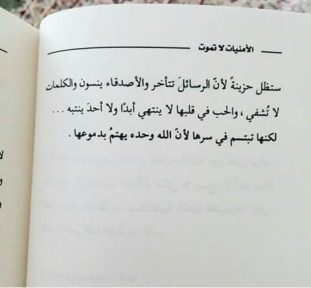 الأمنيات لا تموت
ستظل حزينةً لأنّ الرسائلَ تتأخر والأصدقاء ينسون والكلمات
لا تُشفي، والحب في قلبها لا ينتهي أبدًا ولا أحدَ ينتبه ...
لكنها تبتسم في سرها لأنّ الله وحده يهتمُ بدموعها .